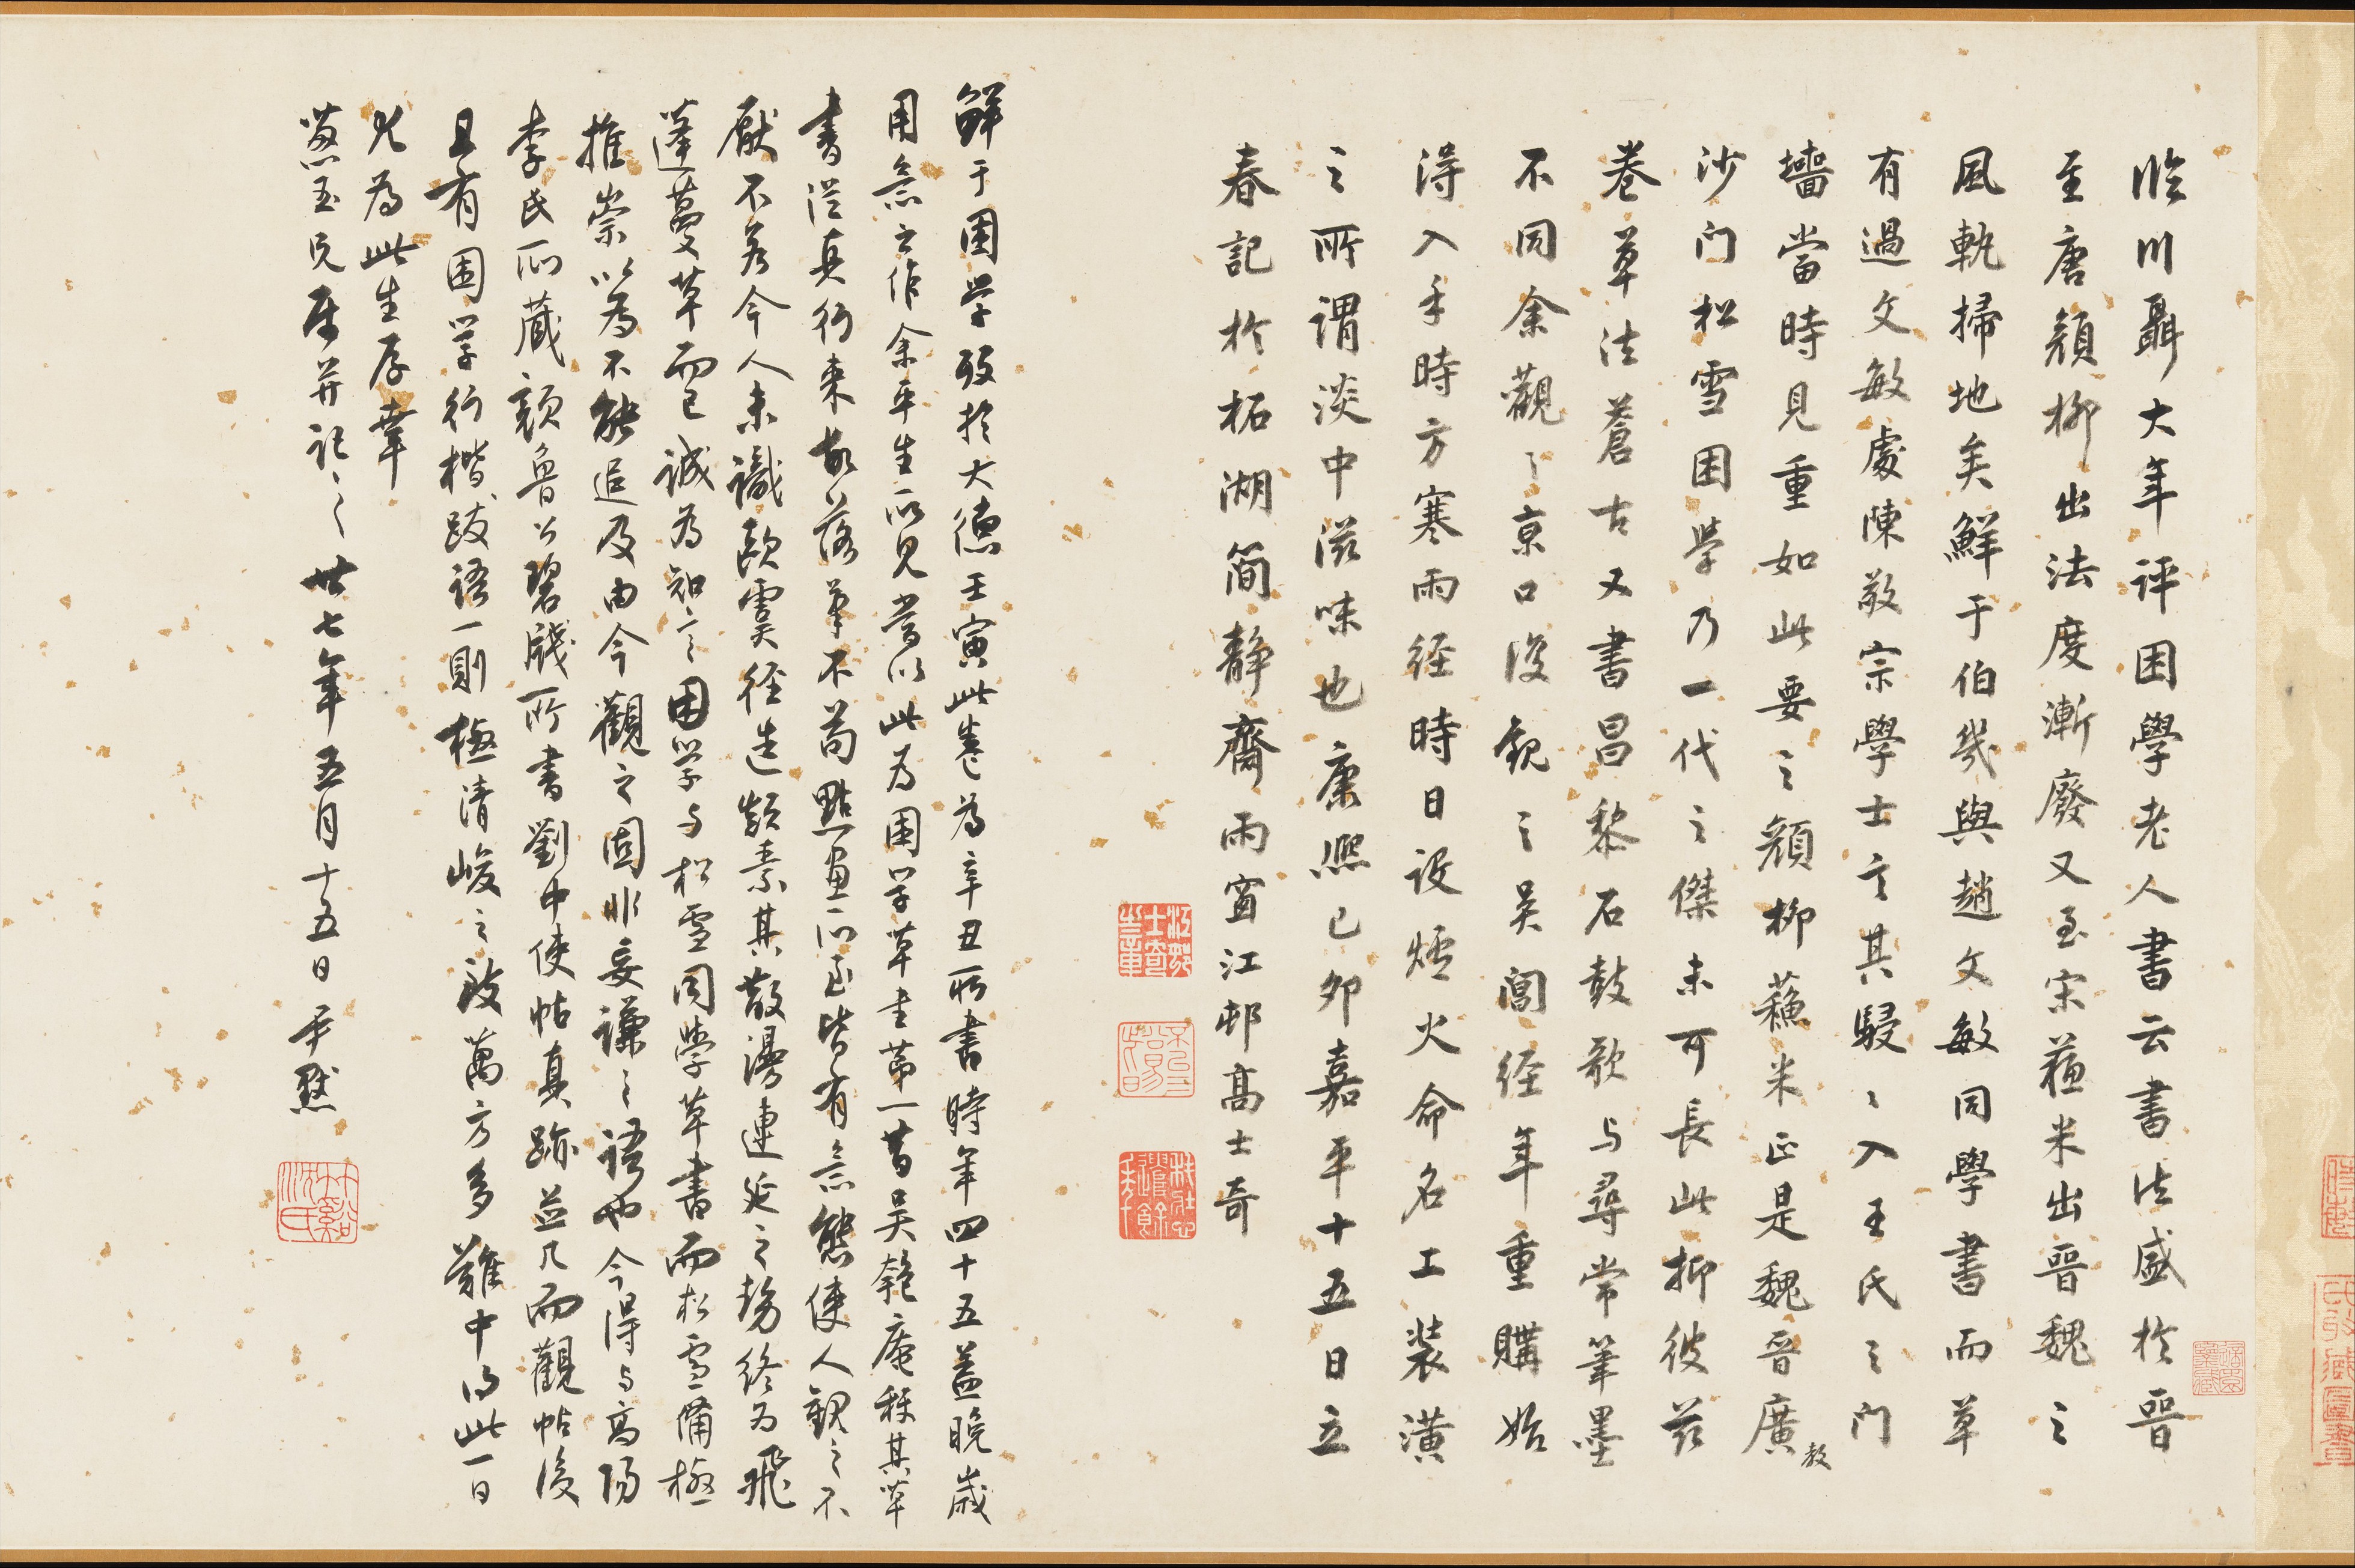 臨川聶大年評困學老人書云書法盛於晉
至唐顏柳出法度漸廢又至宋蘓米出晉魏之
風軌掃地矣鮮于伯幾與趙文敏同學書而草
有過文敏處陳敬宗學士言其駸〻入王氏之門
墻當時見重如此要之顏柳蘓米正是魏晉廣
教
沙门松雪困學乃一代之傑未可長此抑彼茲
卷草法蒼古又書昌黎石鼓歌与尋常筆墨
不同余觀之京口後觀之吴閶經年重購始
得入手時方寒雨經時日設爐火命名工裝潢
之所謂淡中滋味也康熙己卯嘉平十五日立
春記於柘湖簡靜齋雨窗江邨高士奇
鮮于困学歿於大德壬寅此卷為辛丑所書時年四十五蓋晚歲
用意之作余平生所見嘗以此为困学草書第一昔吴匏庵稱其草
書從真行来故落筆不苟點畫所至皆有意態使人觀之不
厭不若今人未識歐虞径造顛素其散漫連延之勢終为飛
蓬蔓草而已誠为知言困学与松雪同學草書而松雪備極
推崇以為不能追及由今觀之固非妄謙之語也今得与高陽
李氏所藏顏魯公碧牋所書劉中使帖真跡並几而觀帖後
且有困学行楷跋語一則極清峻之致萬方多難中得此一日
眼为此生厚幸
蔥玉兄属并記之 卅七年五月十五日 尹默
江邨
士奇
之章
竹谿
沈氏